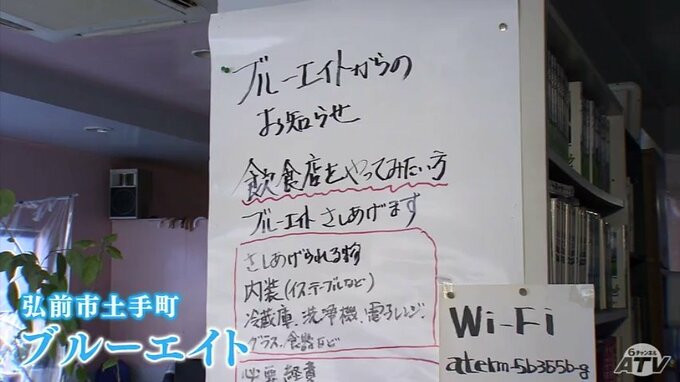 ブルーエイトからの
お知らせ
飲食店をやってみたい方
ブルーエイトさしあげます
さしあげられる物
内装(イステーブルなど)
冷蔵庫、洗浄機、電子レンジ、
グラス、食器など
必要経費
Wi-Fi
aterm-5b365b-g
弘前市土手町
ブルーエイト
6チャンネル
ATV